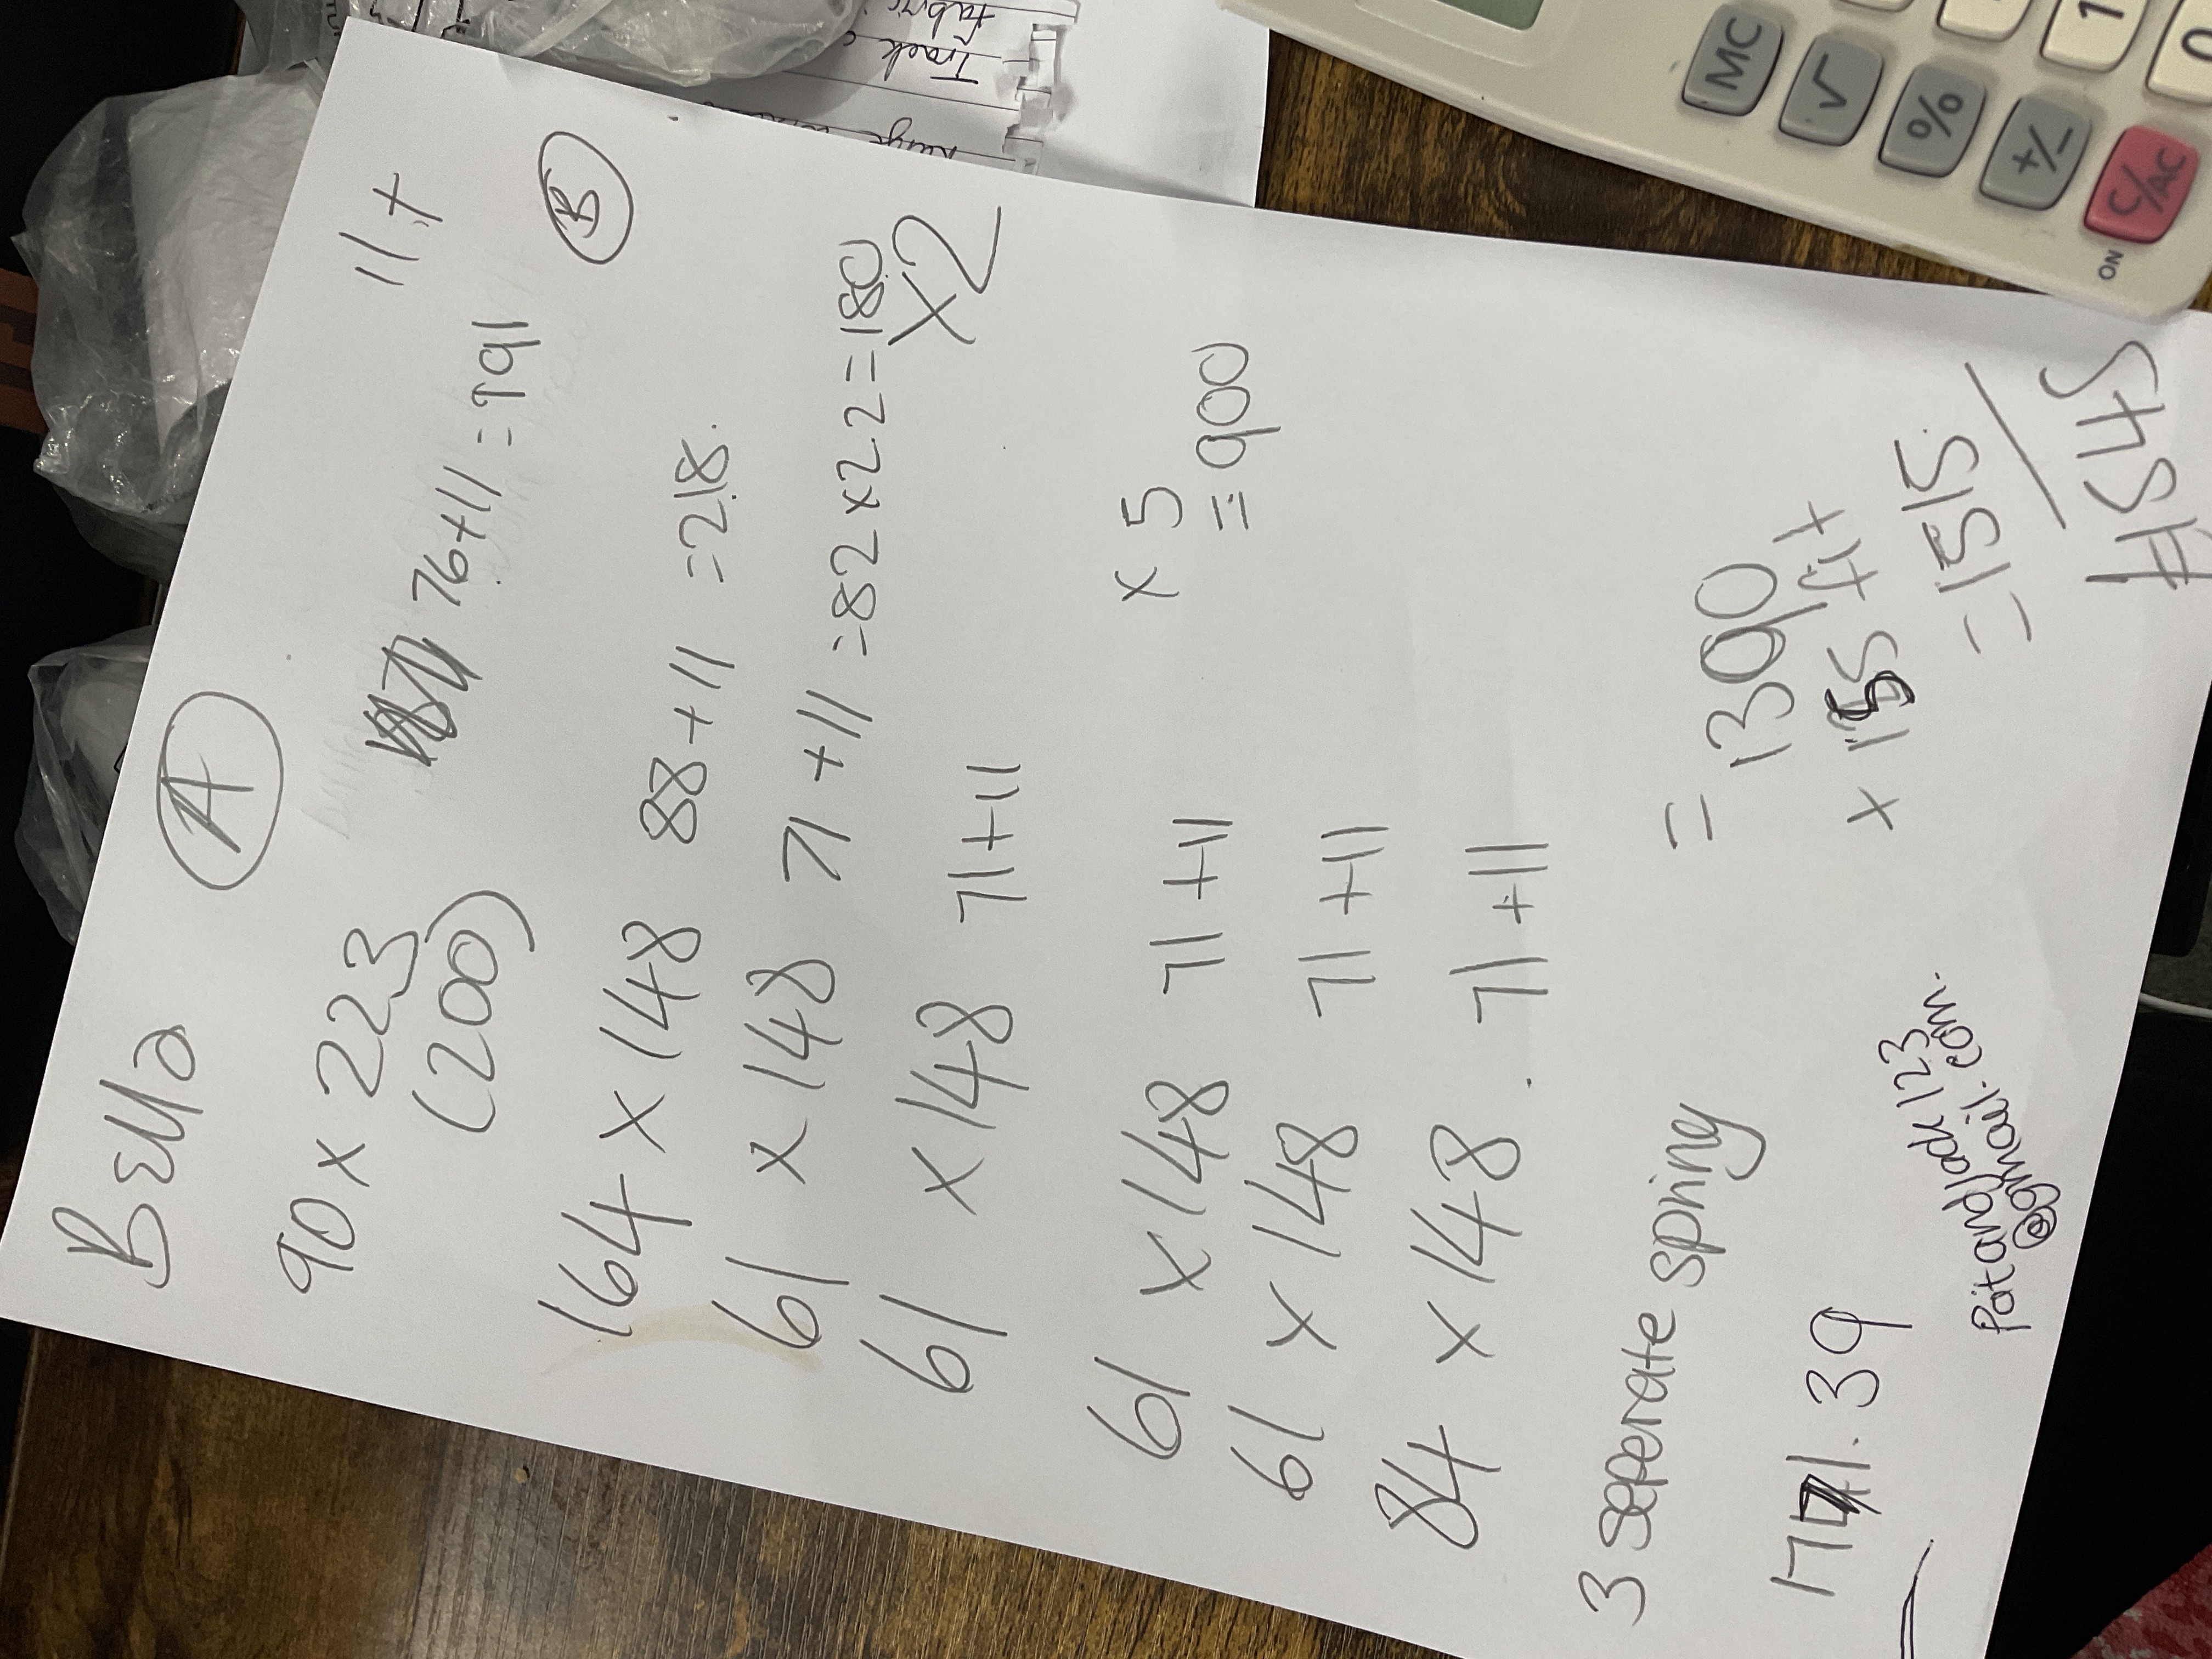 Bella
A
11+
B
90 x 223
(200)
76+11 = 191
164 x 148 88+11 = 218.
61 x 148 71+11 = 82 x 2.2 = 180
x2
61 x 148 71+11
x 5
= 900
61 x 148 71+11
61 x 148 71+11
84 x 148 . 71+11
3 seperate spring
= 1390
x 185 fit
= 1515
1741.39
patandjack123
@gmail.com.
545
Track
fabric
MC
√
%
+/-
C/AC
ON
1
0